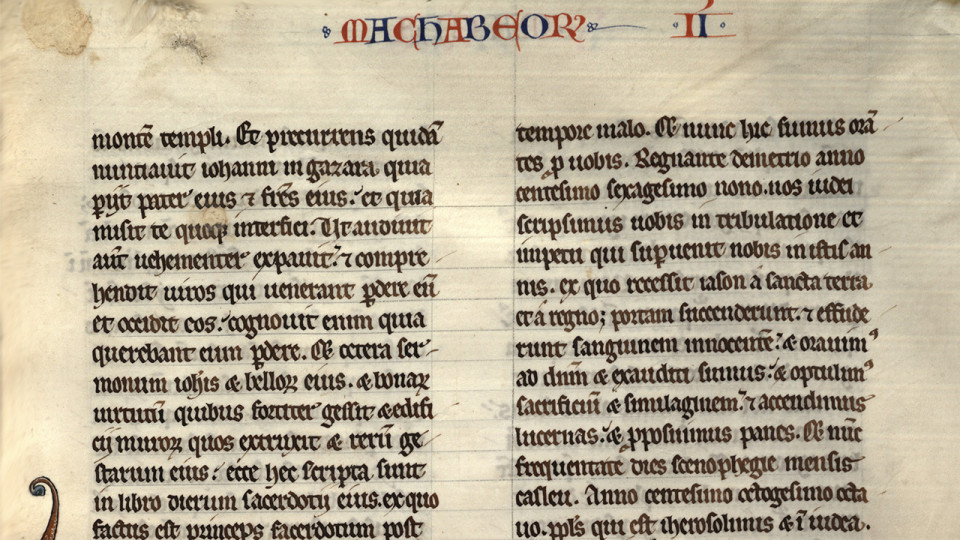 MACHABEOR II
montē templi. Et precurrens quidā
nuntiauit iohanni in gazara quia
ꝑijt pater eius ⁊ frēs eius. et quia
misit te quoqꝫ interfici. Ut audiuit
aut̄ uehementer expauit. ⁊ compre
hendit uiros qui uenerant ꝑdere eū
et occidit eos. cognouit enim quia
querebant eum ꝑdere. Et cetera ser
monum ioh̄is & belloꝝ eius. & bonaꝝ
uirtutū quibus fortiter gessit & edifi
cij muroꝝ quos extruxit & rerū ge
starum eius. ecce hec scripta sunt
in libro dierum sacerdotij eius. ex quo
factus est princeps sacerdotum post
tempore malo. Et nunc hic sumus orā
tes ꝓ uobis. Regnante demetrio anno
centesimo sexagesimo nono. nos iudei
scripsimus uobis in tribulatione et
impetu qui suꝑuenit nobis in istis an
nis. ex quo recessit iason á sancta terra
et á regno; portam succenderunt. ⁊ effude
runt sanguinem innocentē. & orauimꝰ
ad dn̄m & exauditi sumus. & optulimꝰ
sacrificiū & similaginem. ⁊ accendimus
lucernas. & ꝓposuimus panes. Et nūc
frequentate dies scenophegie mensis
casleu. Anno centesimo octogesimo octa
uo. ppl̄s qui est iherosolimis & ī iudea.